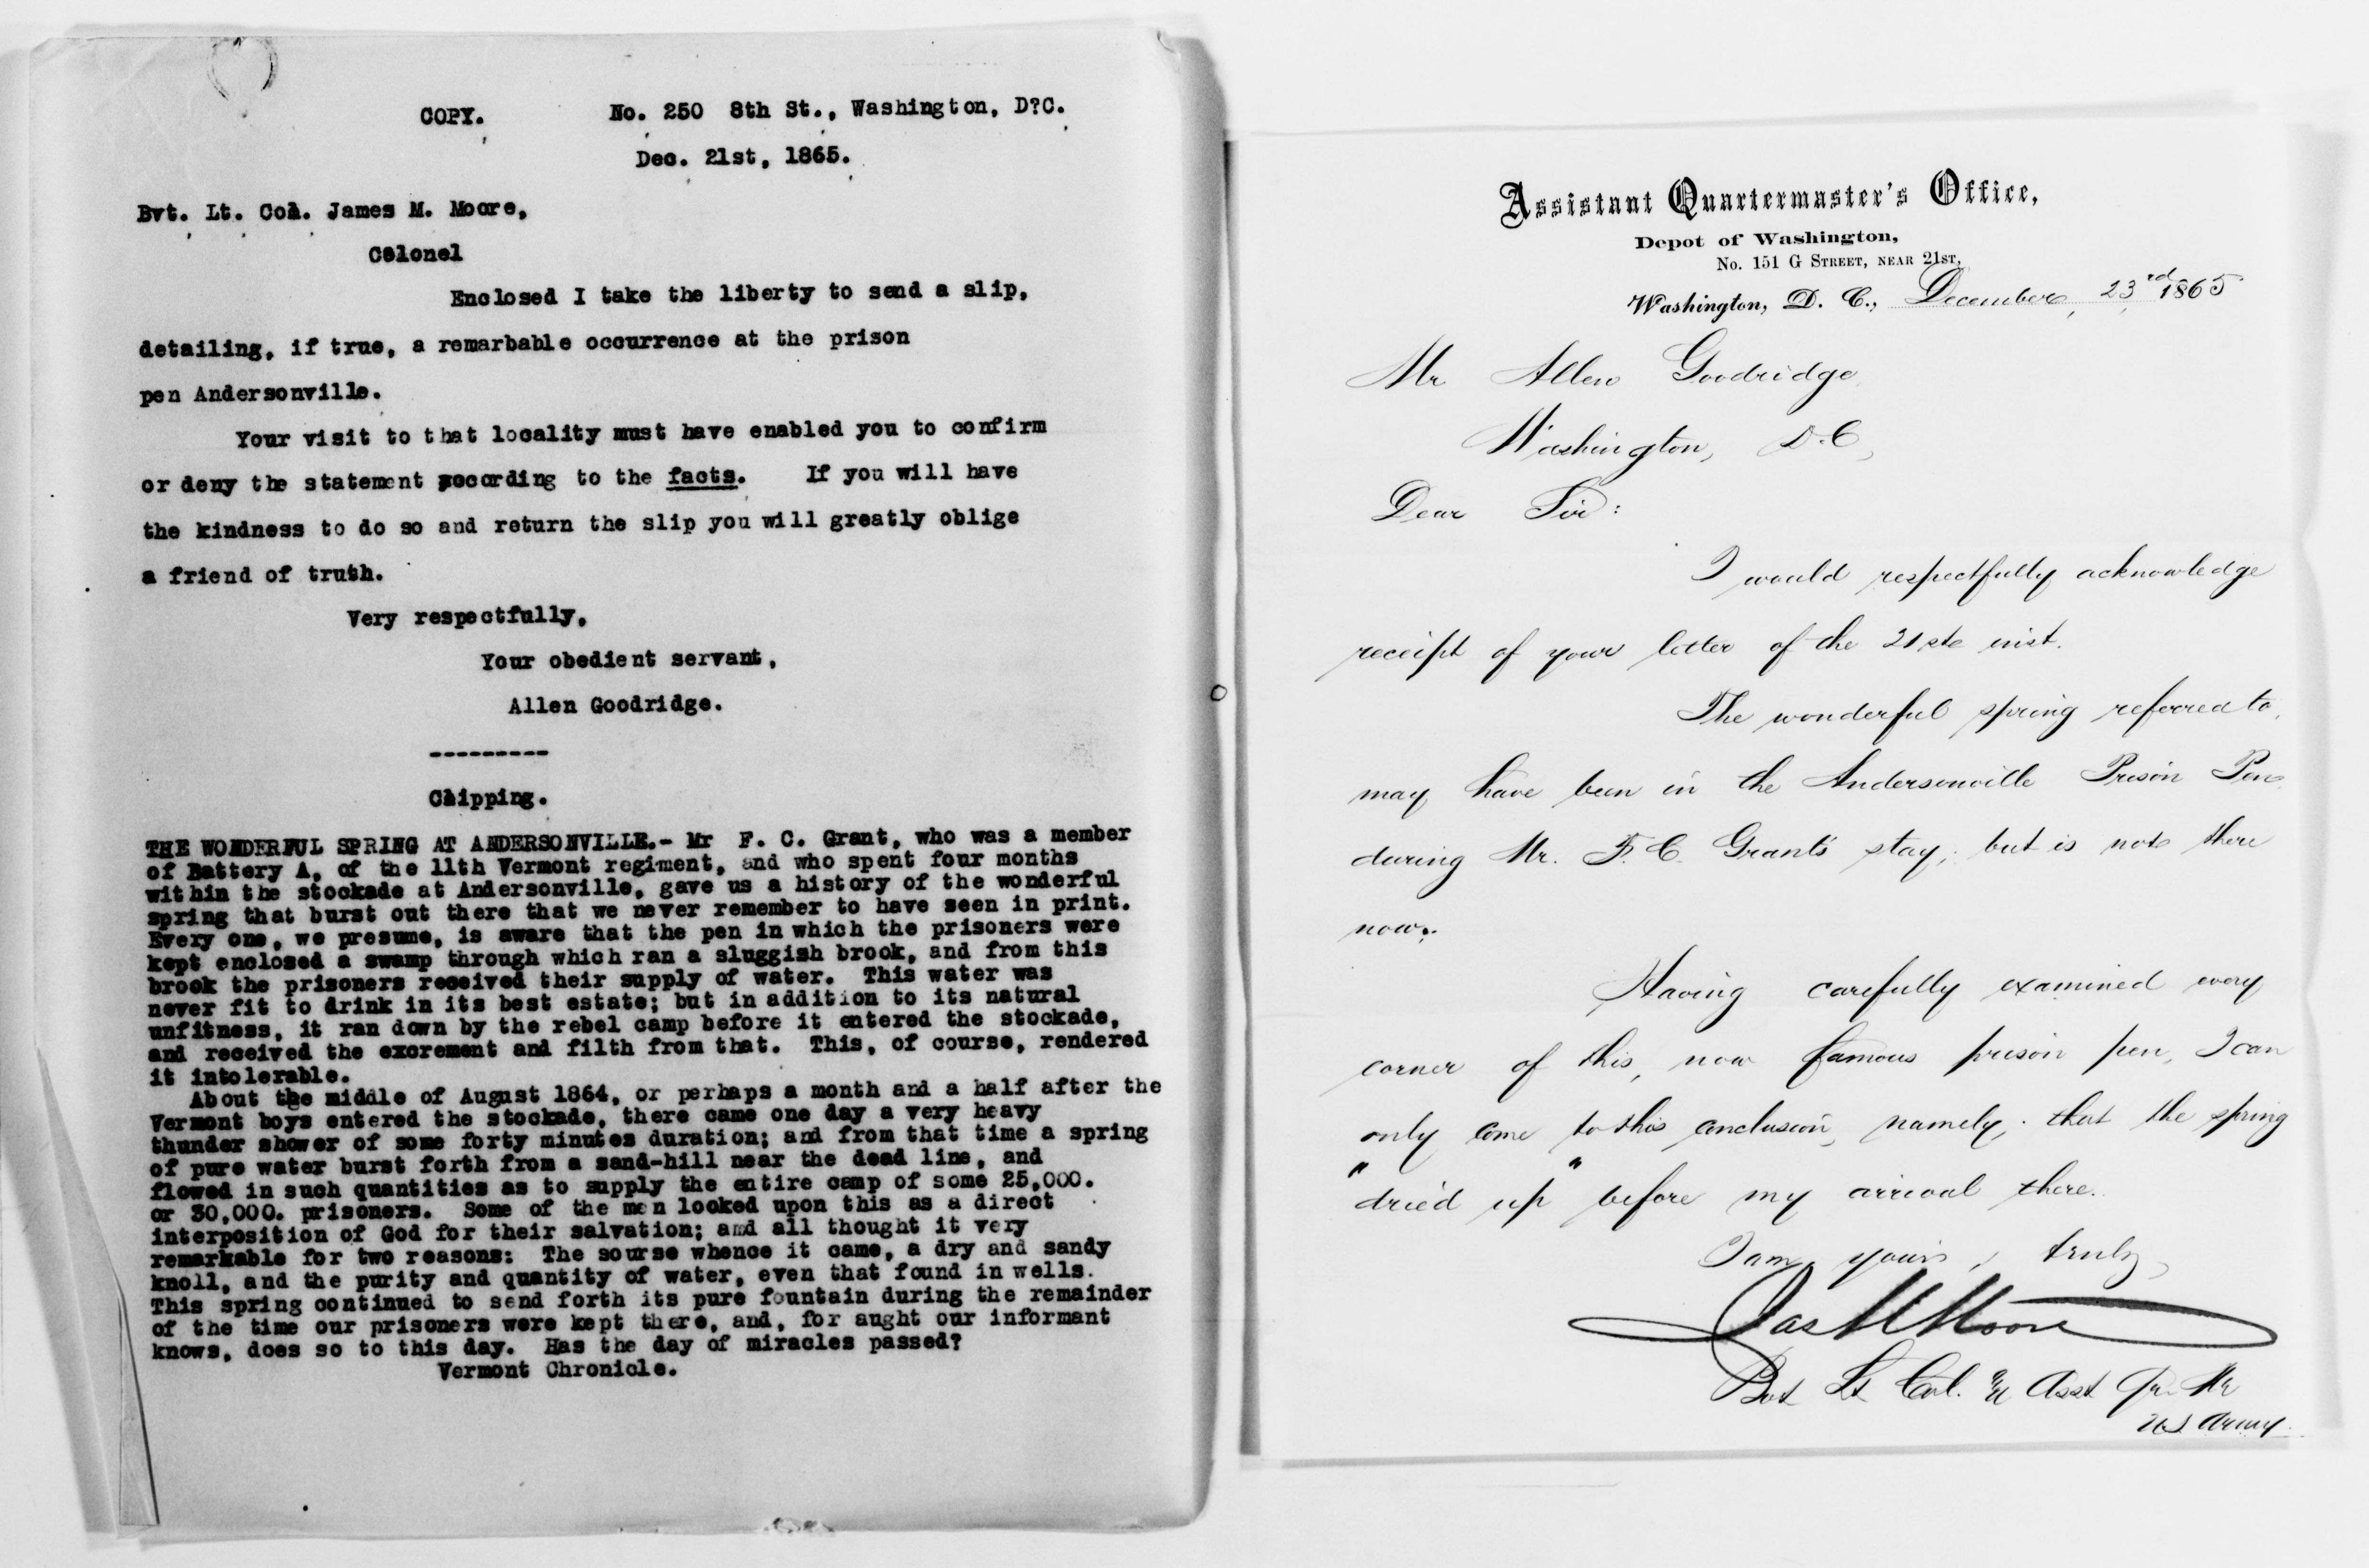 COPY. No. 250 8th St., Washington, D?C.
Dec. 21st, 1865.
Bvt. Lt. Col. James M. Moore,
Colonel
Enclosed I take the liberty to send a slip,
detailing, if true, a remarbable occurrence at the prison
pen Andersonville.
Your visit to that locality must have enabled you to confirm
or deny the statement according to the facts. If you will have
the kindness to do so and return the slip you will greatly oblige
a friend of truth.
Very respectfully,
Your obedient servant,
Allen Goodridge.
---------
Clipping.
THE WONDERFUL SPRING AT ANDERSONVILLE.- Mr F. C. Grant, who was a member
of Battery A, of the 11th Vermont regiment, and who spent four months
within the stockade at Andersonville, gave us a history of the wonderful
spring that burst out there that we never remember to have seen in print.
Every one, we presume, is aware that the pen in which the prisoners were
kept enclosed a swamp through which ran a sluggish brook, and from this
brook the prisoners received their supply of water. This water was
never fit to drink in its best estate; but in addition to its natural
unfitness, it ran down by the rebel camp before it entered the stockade,
and received the excrement and filth from that. This, of course, rendered
it intolerable.
About the middle of August 1864, or perhaps a month and a half after the
Vermont boys entered the stockade, there came one day a very heavy
thunder shower of some forty minutes duration; and from that time a spring
of pure water burst forth from a sand-hill near the dead line, and
flowed in such quantities as to supply the entire camp of some 25,000.
or 30,000. prisoners. Some of the men looked upon this as a direct
interposition of God for their salvation; and all thought it very
remarkable for two reasons: The sourse whence it came, a dry and sandy
knoll, and the purity and quantity of water, even that found in wells.
This spring continued to send forth its pure fountain during the remainder
of the time our prisoners were kept there, and, for aught our informant
knows, does so to this day. Has the day of miracles passed?
Vermont Chronicle.
Assistant Quartermaster's Office,
Depot of Washington,
No. 151 G Street, near 21st,
Washington, D. C., December, 23rd 1865
Mr Allen Goodridge
Washington, D.C,
Dear Sir:
I would respectfully acknowledge
receipt of your letter of the 21st inst.
The wonderful spring referred to,
may have been in the Andersonville Prison Pen
during Mr. F. C. Grant's stay, but is not there
now.
Having carefully examined every
corner of this, now famous prison pen, I can
only come to this conclusion, namely, that the spring
"dried up" before my arrival there.
I am, yours, truly,
Jas M Moore
Bvt Lt Col. & Asst Qr. Mr
U S Army.